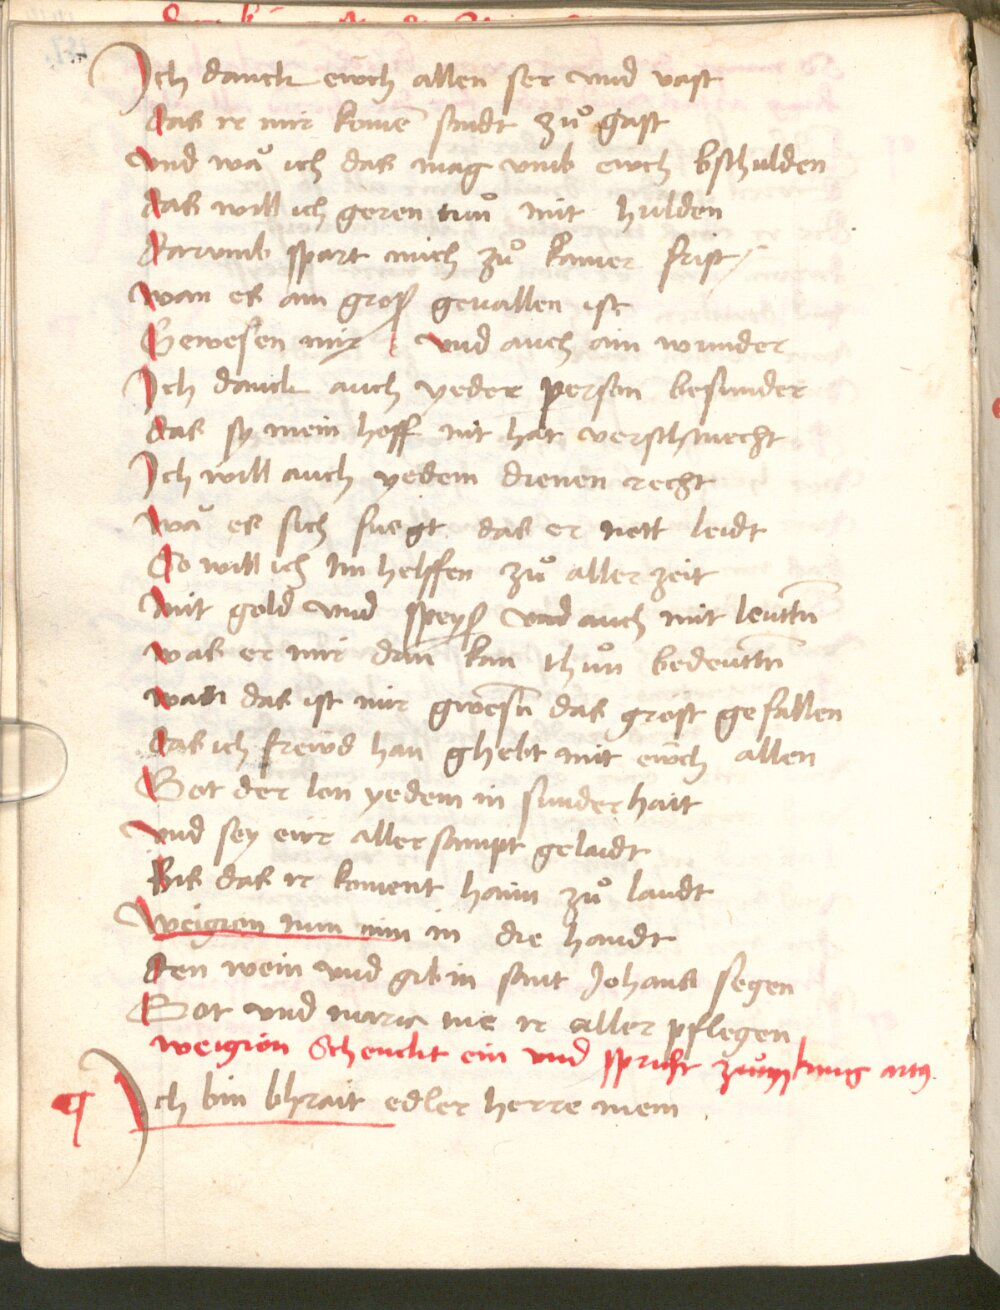 Ich danck ewch allen ser vnd vast
das ir mir komē sindt zů gast
vnd wā ich das mag vmb ewch bschulden
das will ich geren tun mit hulden
darvmb spart mich zů kainer frist
wan es ain groß geuallen ist
Gewesen mir vnd auch ain wunder
Ich danck auch yeder person besunder
das sy mein hoff nit hat verschmecht
Ich will auch yedem dienen recht
wā es sich fuegt das er nott leidt
So will ich Im helffen zů aller zeit
mit gold vnd speyß vnd auch mit leuttn
was er mir dan kan thůn bedeuttn
wan das ist mir gwesn das gröst gefallen
das ich frewd han ghebt mit ewch allen
Got der lon yedem in sunderhait
vnd sey ewr aller sampt gelaidt
Bis das ir koment haim zů landt
weigion nun nim in die handt
den wein vnd gib in sant Johans segen
Got vnd maria me ir aller pflegen
weigion Schenckt ein vnd spricht zům kunig artus
Ich bin bhrait edler herre mein